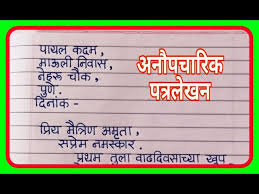 पायल कदम,
माऊली निवास,
नेहरू चौक,
पुणे.
दिनांक -
प्रिय मैत्रिण अमृता,
सप्रेम नमस्कार.
प्रथम तुला वाढदिवसाच्या खूप
अनौपचारिक
पत्रलेखन